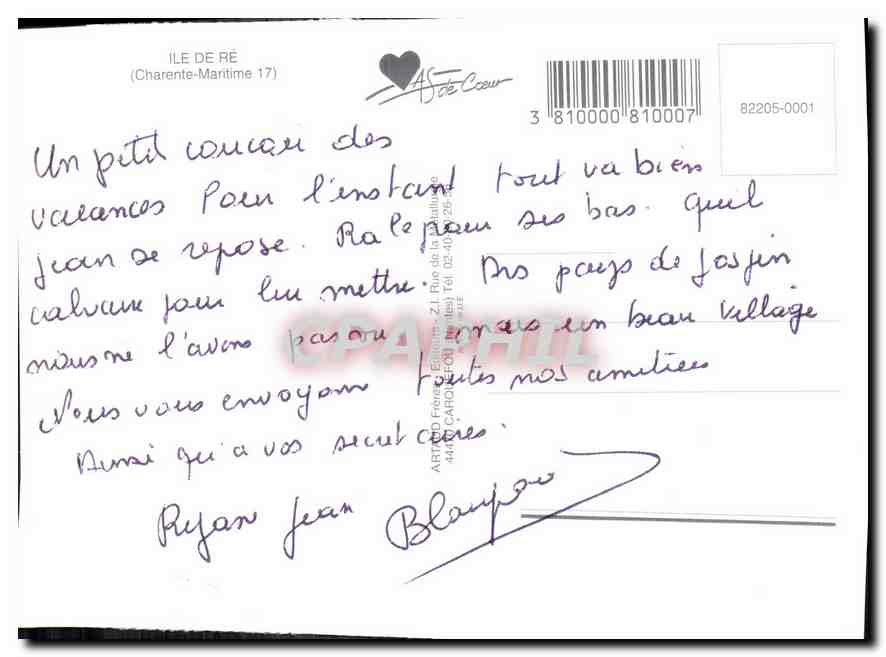 ILE DE RÉ
(Charente-Maritime 17)
AS de Cœur
3 810000 810007
82205-0001
Un petit coucou des
vacances Pour l'instant tout va bien
jean se repose. Rale pour ses bas. Quil
pour lui mettre. pays de Jospin
nous ne l'avons pas vu mais un beau village
Nous vous envoyons toutes nos amitiées
Aussi qu'a vos secretaires.
Ryan Jean
ARTAUD Frères Editeurs - Z.I. Rue de la Métallurgie
44470 CARQUEFOU
CPAPHIL